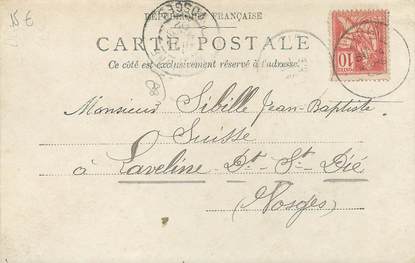 15 €
RÉPUBLIQUE FRANÇAISE
CARTE POSTALE
Ce côté est exclusivement réservé à l'adresse.
VOSGES
10
Monsieur Sibille Jean-Baptiste
Suisse
à Laveline Dt St Dié
Vosges